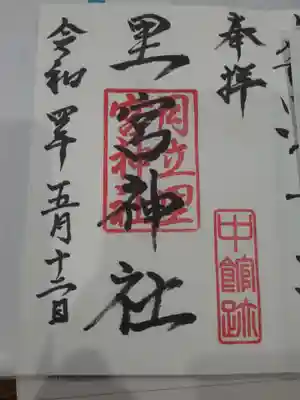 奉拝
里宮神社
令和四年五月十二日
中館跡